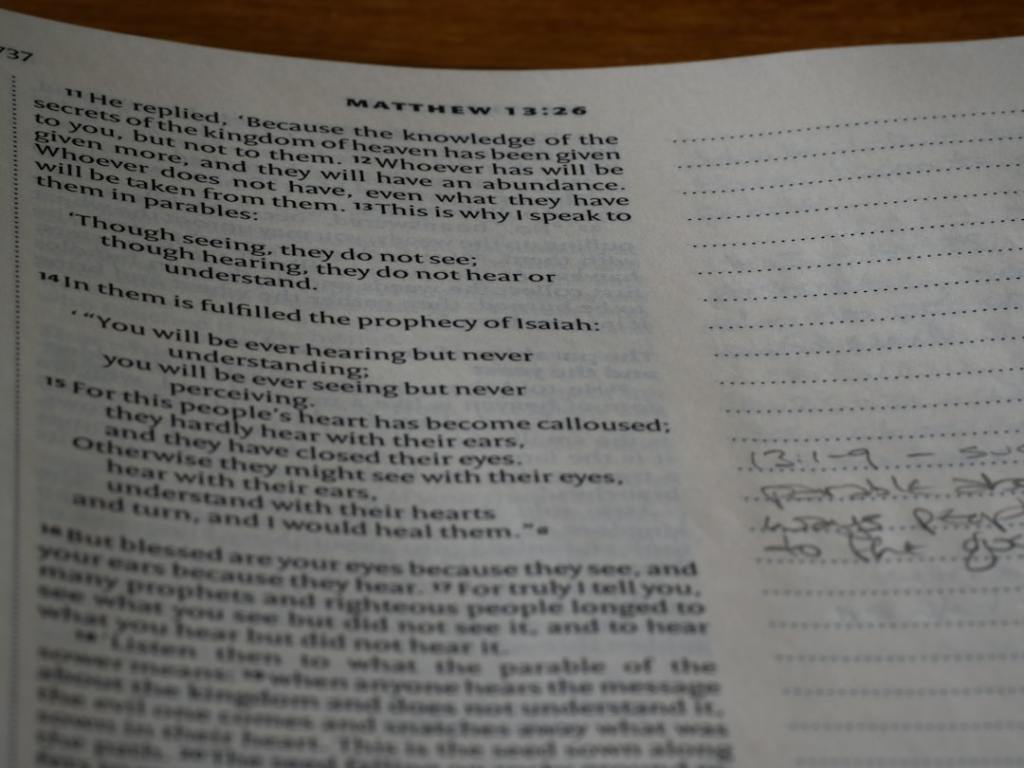 737
MATTHEW 13:26
11 He replied, ‘Because the knowledge of the
secrets of the kingdom of heaven has been given
to you, but not to them. 12 Whoever has will be
given more, and they will have an abundance.
Whoever does not have, even what they have
will be taken from them. 13 This is why I speak to
them in parables:
‘Though seeing, they do not see;
though hearing, they do not hear or
understand.
14 In them is fulfilled the prophecy of Isaiah:
‘ “You will be ever hearing but never
understanding;
you will be ever seeing but never
perceiving.
15 For this people’s heart has become calloused;
they hardly hear with their ears,
and they have closed their eyes.
Otherwise they might see with their eyes,
hear with their ears,
understand with their hearts
and turn, and I would heal them.” a
16 But blessed are your eyes because they see, and
your ears because they hear. 17 For truly I tell you,
many prophets and righteous people longed to
see what you see but did not see it, and to hear
what you hear but did not hear it.
18 ‘Listen then to what the parable of the
sower means: 19 when anyone hears the message
about the kingdom and does not understand it,
the evil one comes and snatches away what was
sown in their heart. This is the seed sown along
the path. 20 The seed falling on rocky ground
13:1-9 -
parable
ways
to the